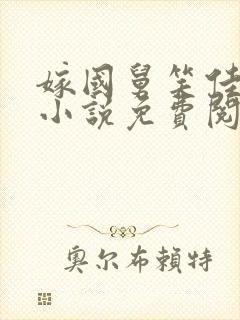 嫁國舅笑佳
小說免費閱
奧尔布賴特